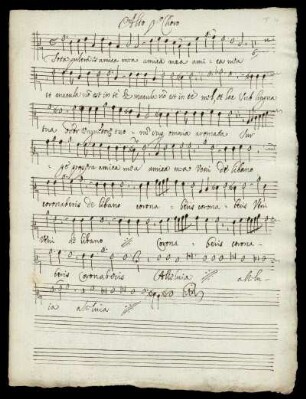 Alto p.o Choro
Tota pulchra es amica mea amica mea ami - ca mea
et macula nō est in te et macula nō est in te mel et lac sub lingua
tua odor unguentorū tuo - rū super omnia aromata Sur
ge propera amica mea amica mea Veni de libano
coronaberis de libano corona - beris Veni
Veni de libano Corona - beris corona
beris Coronaberis Alleluia allelu
ia alleluia